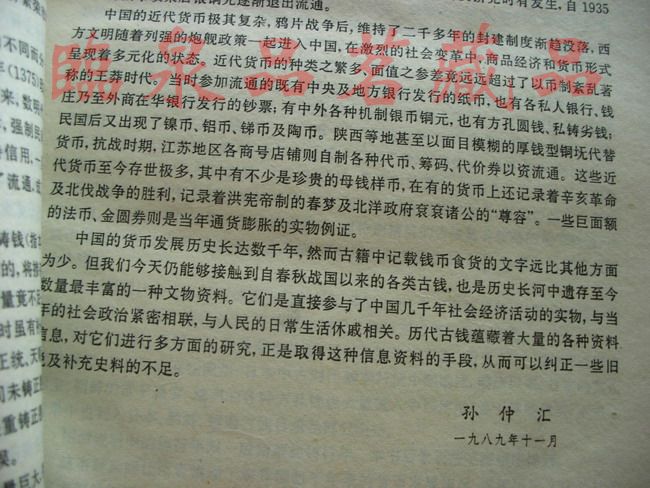 逐渐退出流通。
中国的近代货币极其复杂，鸦片战争后，维持了二千多年的封建制度渐趋没落，西
方文明随着列强的炮舰政策一起进入中国，在激烈的社会变革中，商品经济和货币形式
呈现着多元化的状态。近代货币的种类之繁多、面值之参差竟远远超过了以币制紊乱著
称的王莽时代。当时参加流通的既有中央及地方银行发行的纸币，也有各私人银行、钱
庄乃至外商在华银行发行的钞票；有中外各种机制银币铜元，也有方孔圆钱、私铸劣钱；
民国后又出现了镍币、铝币、锑币及陶币。陕西等地甚至以面目模糊的厚钱型铜坯代替
货币，抗战时期，江苏地区各商号店铺则自制各种代币、筹码、代价券以资流通。这些近
代货币至今存世极多，其中有不少是珍贵的母钱样币，在有的货币上还记录着辛亥革命
及北伐战争的胜利，记录着洪宪帝制的春梦及北洋政府衮衮诸公的“尊容”。一些巨面额
的法币、金圆券则是当年通货膨胀的实物例证。
中国的货币发展历史长达数千年，然而古籍中记载钱币食货的文字远比其他方面
为少。但我们今天仍能够接触到自春秋战国以来的各类古钱，也是历史长河中遗存至今
数量最丰富的一种文物资料。它们是直接参与了中国几千年社会经济活动的实物，与当
年的社会政治紧密相联，与人民的日常生活休戚相关。历代古钱蕴藏着大量的各种资料
信息，对它们进行多方面的研究，正是取得这种信息资料的手段，从而可以纠正一些旧
及补充史料的不足。
孙仲汇
一九八九年十一月